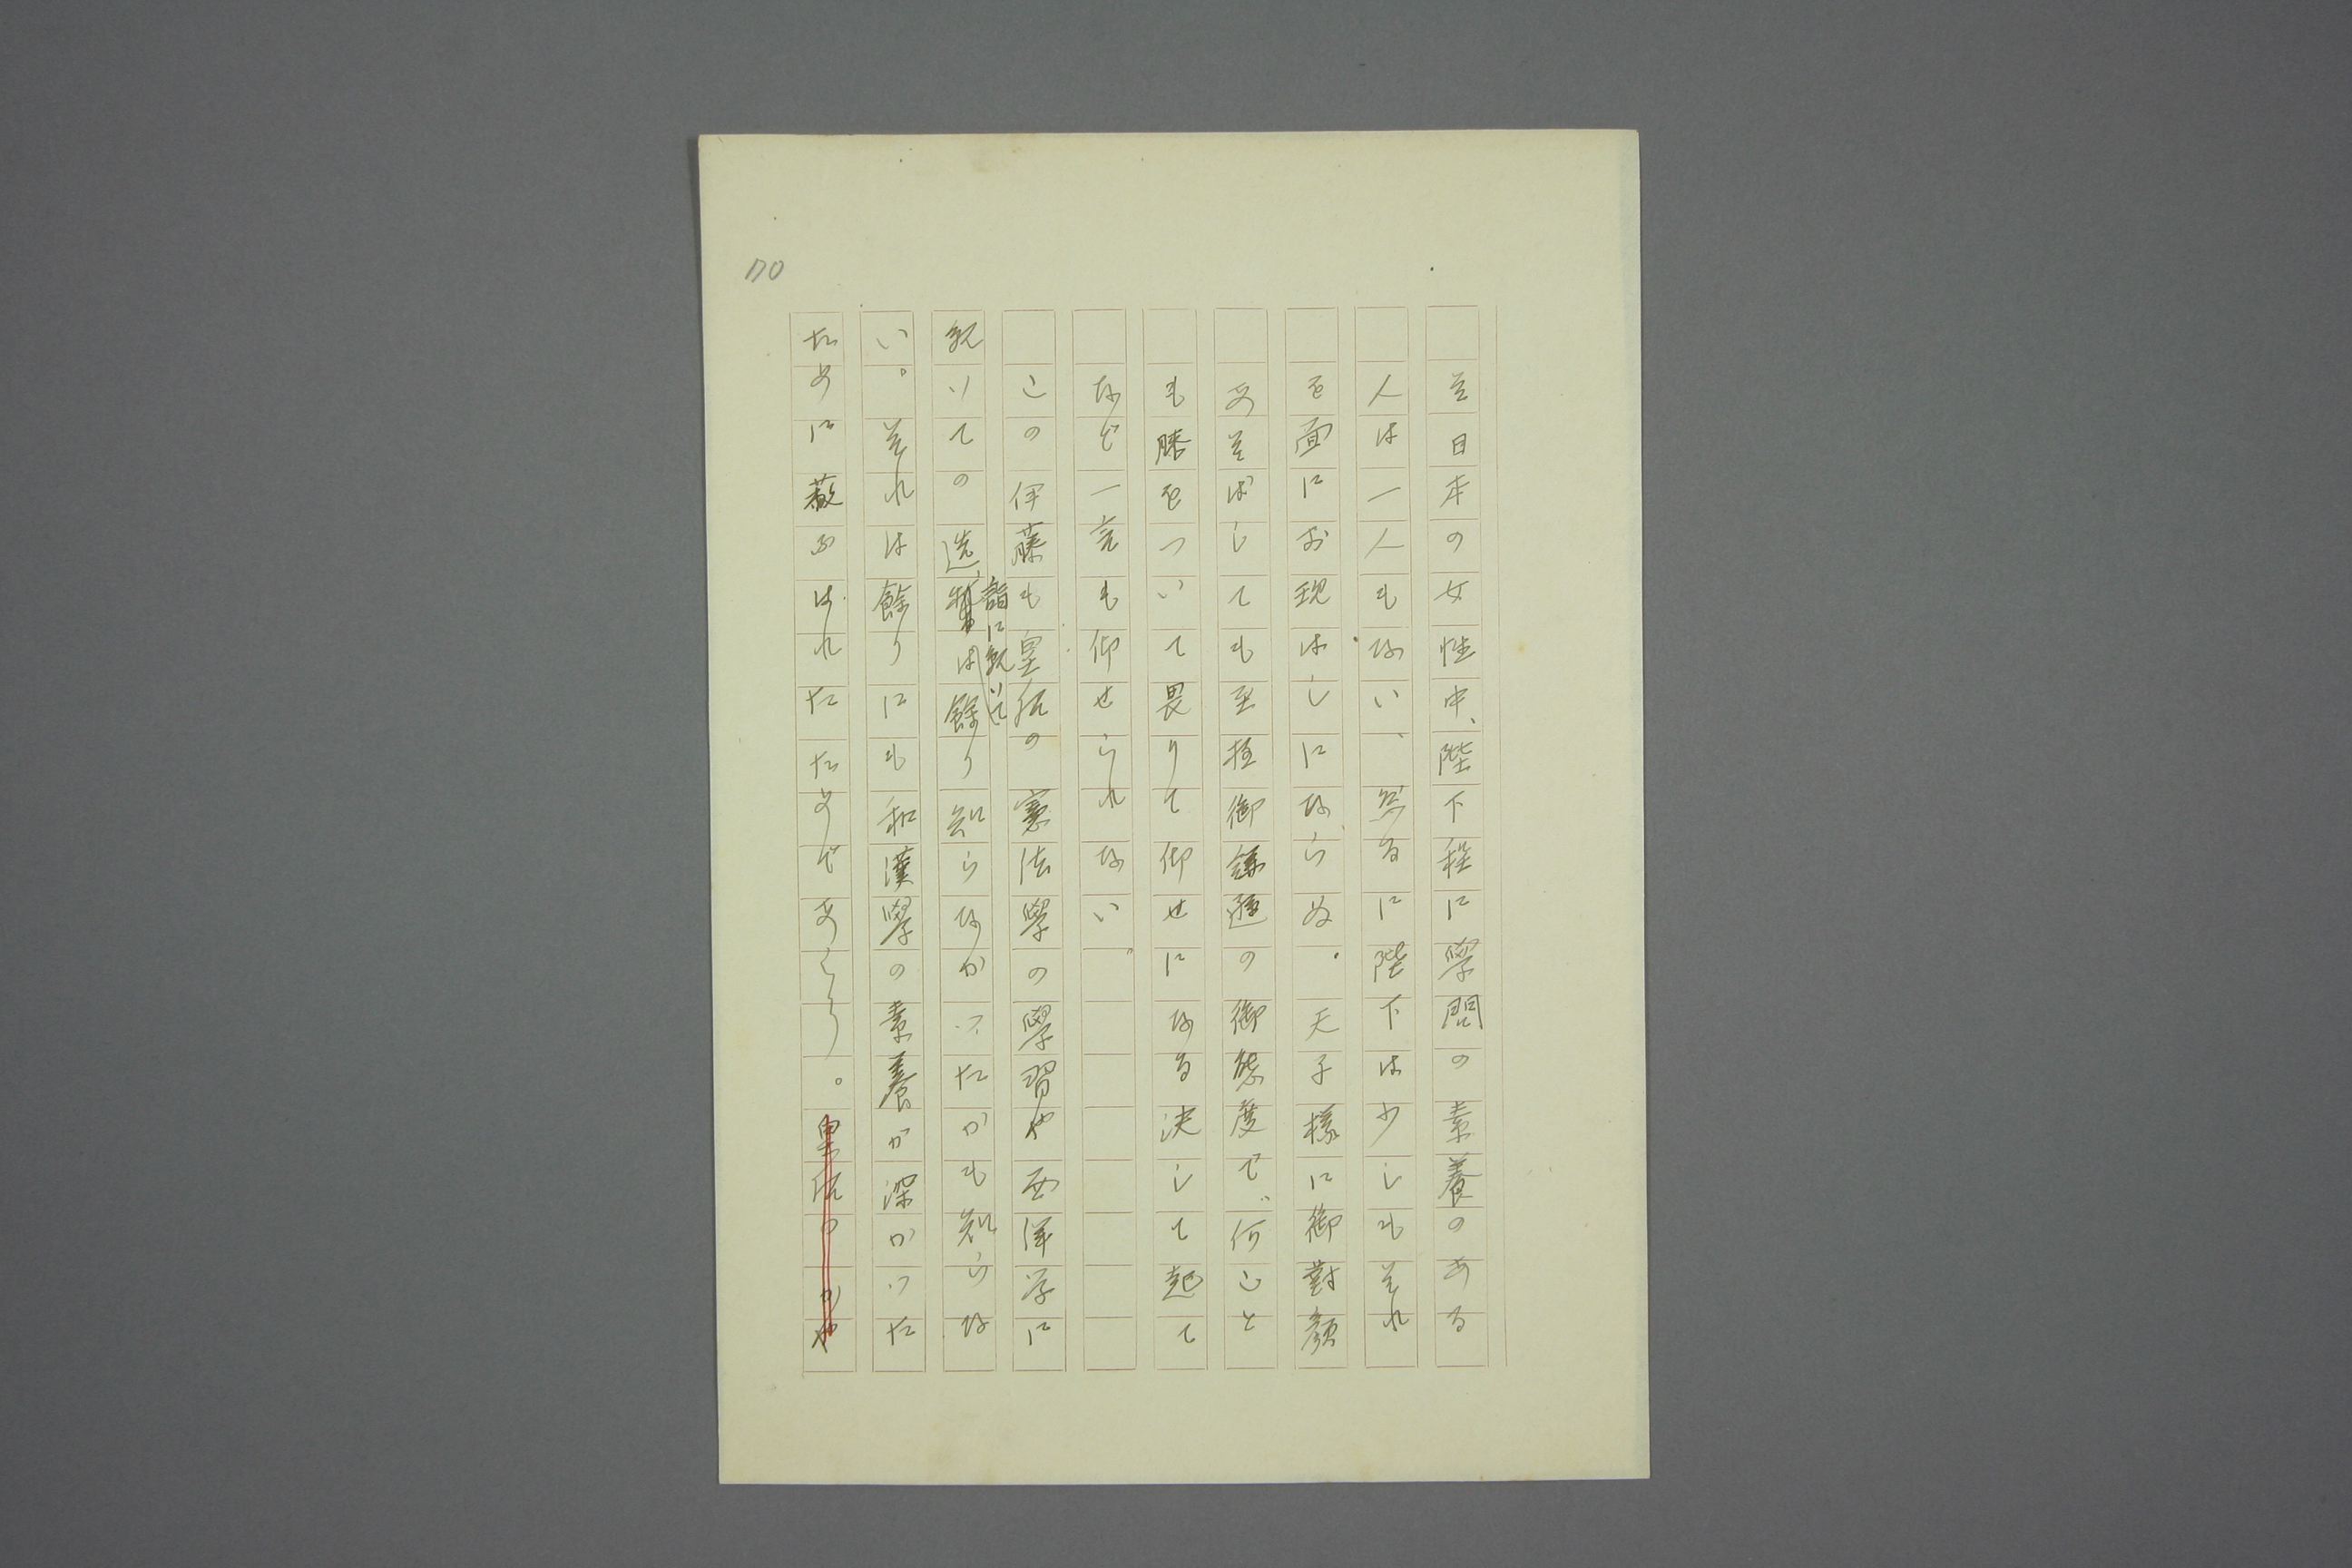 170
今日本の女性中、陛下程に學問の素養のある
人は一人もない、然るに陛下は少しもそれ
を面にお現はしにならぬ。天子様に御對顔
あそばしても至極御謙遜の御態度で、何こと
も膝をついて畏りて仰せになる決して起て
など一言も仰せられない。
この伊藤も皇后の憲法學の學習や西洋学に
就いての造詣に就いては餘り知らなかつたかも知らな
い。それは餘りにも和漢學の素養が深かつた
ために蔽ふはれたためであらう。皇后のかや